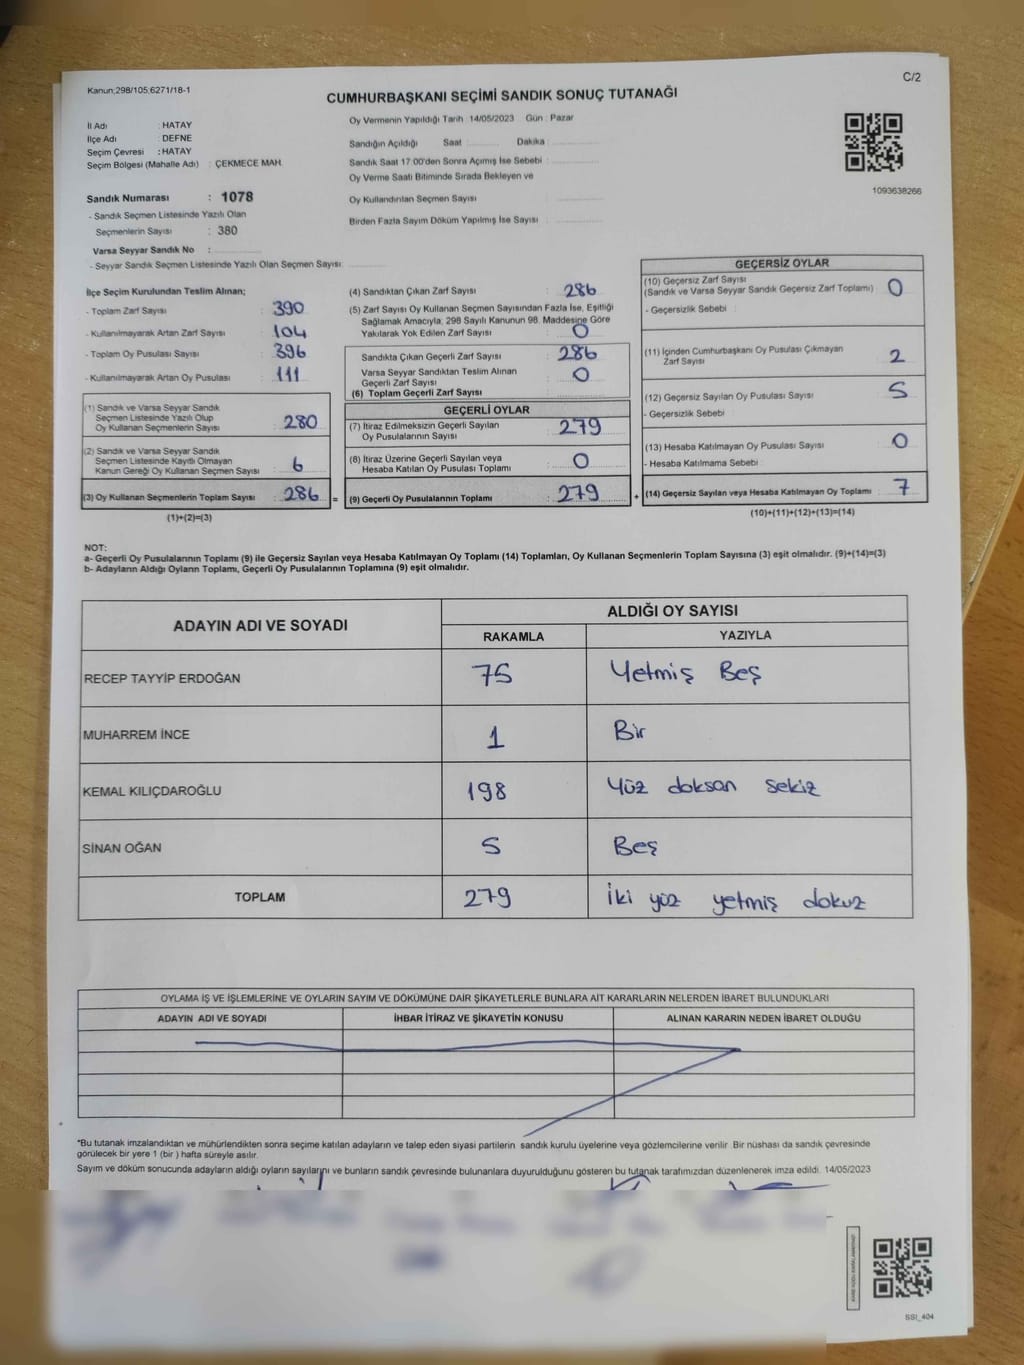 Kanun;298/105;6271/18-1
C/2
CUMHURBAŞKANI SEÇİMİ SANDIK SONUÇ TUTANAĞI
İl Adı : HATAY
İlçe Adı : DEFNE
Seçim Çevresi : HATAY
Seçim Bölgesi (Mahalle Adı) : ÇEKMECE MAH.
Sandık Numarası : 1078
- Sandık Seçmen Listesinde Yazılı Olan
Seçmenlerin Sayısı : 380
Varsa Seyyar Sandık No :
- Seyyar Sandık Seçmen Listesinde Yazılı Olan Seçmen Sayısı:
Oy Vermenin Yapıldığı Tarih :14/05/2023 Gün : Pazar
Sandığın Açıldığı Saat : Dakika :
Sandık Saat 17.00'den Sonra Açılmış İse Sebebi :
Oy Verme Saati Bitiminde Sırada Bekleyen ve
Oy Kullandırılan Seçmen Sayısı :
Birden Fazla Sayım Döküm Yapılmış İse Sayısı :
1093638266
İlçe Seçim Kurulundan Teslim Alınan;
- Toplam Zarf Sayısı : 390
- Kullanılmayarak Artan Zarf Sayısı : 104
- Toplam Oy Pusulası Sayısı : 396
- Kullanılmayarak Artan Oy Pusulası : 111
(1) Sandık ve Varsa Seyyar Sandık
Seçmen Listesinde Yazılı Olup
Oy Kullanan Seçmenlerin Sayısı : 280
(2) Sandık ve Varsa Seyyar Sandık
Seçmen Listesinde Kayıtlı Olmayan
Kanun Gereği Oy Kullanan Seçmen Sayısı : 6
(3) Oy Kullanan Seçmenlerin Toplam Sayısı : 286 =
(1)+(2)=(3)
(4) Sandıktan Çıkan Zarf Sayısı : 286
(5) Zarf Sayısı Oy Kullanan Seçmen Sayısından Fazla İse, Eşitliği
Sağlamak Amacıyla, 298 Sayılı Kanunun 98. Maddesine Göre
Yakılarak Yok Edilen Zarf Sayısı : 0
Sandıkta Çıkan Geçerli Zarf Sayısı : 286
Varsa Seyyar Sandıktan Teslim Alınan
Geçerli Zarf Sayısı : 0
(6) Toplam Geçerli Zarf Sayısı :
GEÇERLİ OYLAR
(7) İtiraz Edilmeksizin Geçerli Sayılan
Oy Pusulalarının Sayısı : 279
(8) İtiraz Üzerine Geçerli Sayılan veya
Hesaba Katılan Oy Pusulası Toplamı : 0
(9) Geçerli Oy Pusulalarının Toplamı : 279 +
GEÇERSİZ OYLAR
(10) Geçersiz Zarf Sayısı
(Sandık ve Varsa Seyyar Sandık Geçersiz Zarf Toplamı) : 0
- Geçersizlik Sebebi :
(11) İçinden Cumhurbaşkanı Oy Pusulası Çıkmayan
Zarf Sayısı : 2
(12) Geçersiz Sayılan Oy Pusulası Sayısı : 5
- Geçersizlik Sebebi :
(13) Hesaba Katılmayan Oy Pusulası Sayısı : 0
- Hesaba Katılmama Sebebi :
(14) Geçersiz Sayılan veya Hesaba Katılmayan Oy Toplamı : 7
(10)+(11)+(12)+(13)=(14)
NOT:
a- Geçerli Oy Pusulalarının Toplamı (9) ile Geçersiz Sayılan veya Hesaba Katılmayan Oy Toplamı (14) Toplamları, Oy Kullanan Seçmenlerin Toplam Sayısına (3) eşit olmalıdır. (9)+(14)=(3)
b- Adayların Aldığı Oyların Toplamı, Geçerli Oy Pusulalarının Toplamına (9) eşit olmalıdır.
ADAYIN ADI VE SOYADI
ALDIĞI OY SAYISI
RAKAMLA YAZIYLA
RECEP TAYYİP ERDOĞAN 75 Yetmiş Beş
MUHARREM İNCE 1 Bir
KEMAL KILIÇDAROĞLU 198 Yüz doksan sekiz
SİNAN OĞAN 5 Beş
TOPLAM 279 İki yüz yetmiş dokuz
OYLAMA İŞ VE İŞLEMLERİNE VE OYLARIN SAYIM VE DÖKÜMÜNE DAİR ŞİKAYETLERLE BUNLARA AİT KARARLARIN NELERDEN İBARET BULUNDUKLARI
ADAYIN ADI VE SOYADI İHBAR İTİRAZ VE ŞİKAYETİN KONUSU ALINAN KARARIN NEDEN İBARET OLDUĞU
*Bu tutanak imzalandıktan ve mühürlendikten sonra seçime katılan adayların ve talep eden siyasi partilerin sandık kurulu üyelerine veya gözlemcilerine verilir. Bir nüshası da sandık çevresinde
görülecek bir yere 1 (bir ) hafta süreyle asılır.
Sayım ve döküm sonucunda adayların aldığı oyların sayılarını ve bunların sandık çevresinde bulunanlara duyurulduğunu gösteren bu tutanak tarafımızdan düzenlenerek imza edildi. 14/05/2023
SSI_404